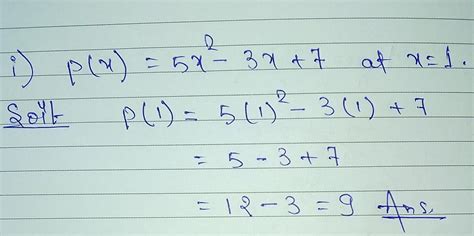 i) p(x) = 5x² - 3x + 7 at x=1.
Solⁿ: p(1) = 5(1)² - 3(1) + 7
= 5 - 3 + 7
= 12 - 3 = 9 Ans.